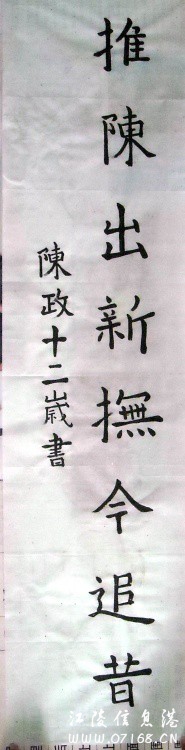 推陳出新撫今追昔
陳政十二歲書
江陵信息港
WWW.07168.CN